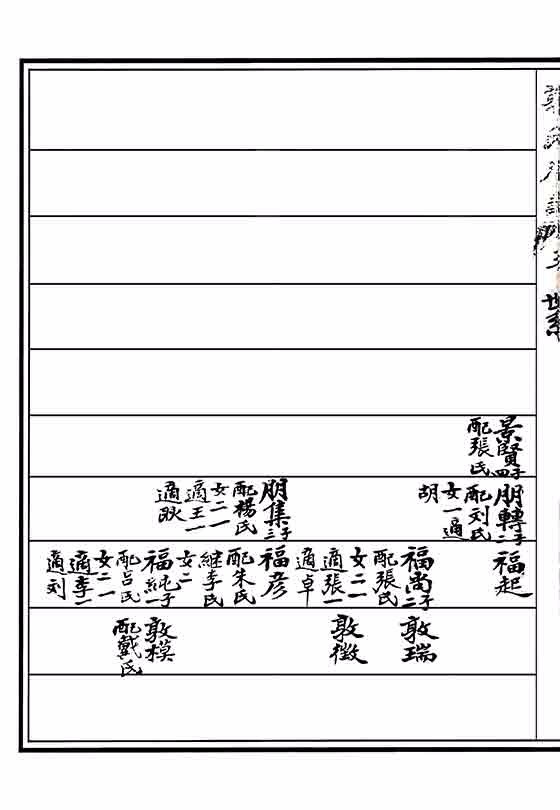 世系
景賢子四
配張氏
朋轉子二
配刘氏
女一適
胡
朋集子三
配楊氏
女二一
適王一
適耿
福起
福尚子二
配張氏
女二一
適張一
適卓
福彦
配朱氏
継李氏
女二
福純子一
配占氏
女二一
適李一
適刘
敦瑞
敦徵
敦模
配戴氏